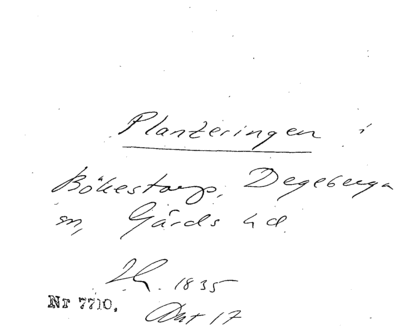 Planteringen i
Bökestorp, Degeberga
sn, Gärds hd.
Jh. 1835
Nr 7710.
Dat 17